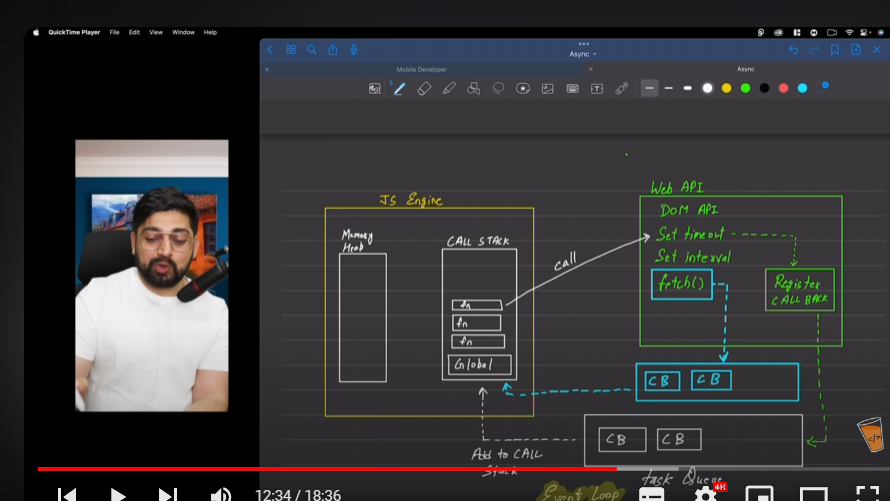 QuickTime Player File Edit View Window Help
Async
Mobile Developer
Async
JS Engine
Memory
Heap
CALL STACK
fn
fn
fn
Global
call
Web API
DOM API
Set timeout
Set interval
fetch()
Register
CALL BACK
CB CB
CB CB
Add to CALL
Stack
task Queue
Event Loop
12:34 / 18:36
4K